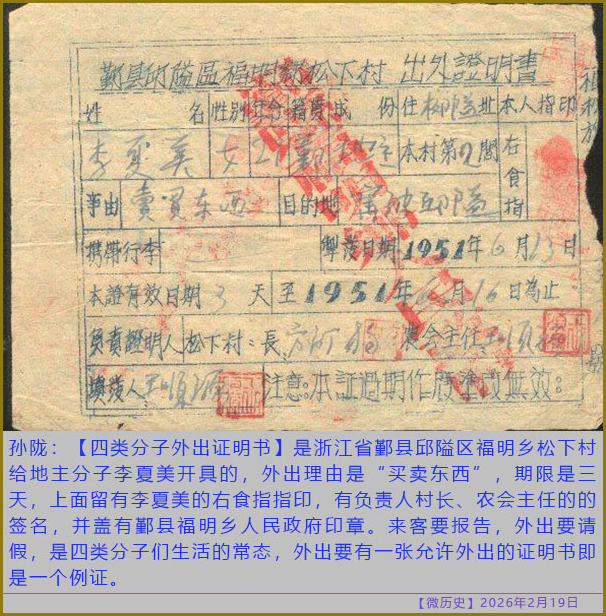 鄞县邱隘區福明鄉松下村 出外證明書
姓 名 性别 年令 籍貫 成 份 住 址 本人指印
李夏美 女 21 鄞 地主 本村第 閭 右食指
事由 賣買东西 目的地 邱隘
携带行李 掣发日期 1951年6月13日
本證有效日期 3 天 至 1951年6月16日為止
負責證明人 松下村 村長 農会主任 王順
填发人 王順 注意:本証過期作廢塗改無效:
孙陇：【四类分子外出证明书】是浙江省鄞县邱隘区福明乡松下村
给地主分子李夏美开具的，外出理由是“买卖东西”，期限是三
天，上面留有李夏美的右食指指印，有负责人村长、农会主任的的
签名，并盖有鄞县福明乡人民政府印章。来客要报告，外出要请
假，是四类分子们生活的常态，外出要有一张允许外出的证明书即
是一个例证。
【微历史】2026年2月19日